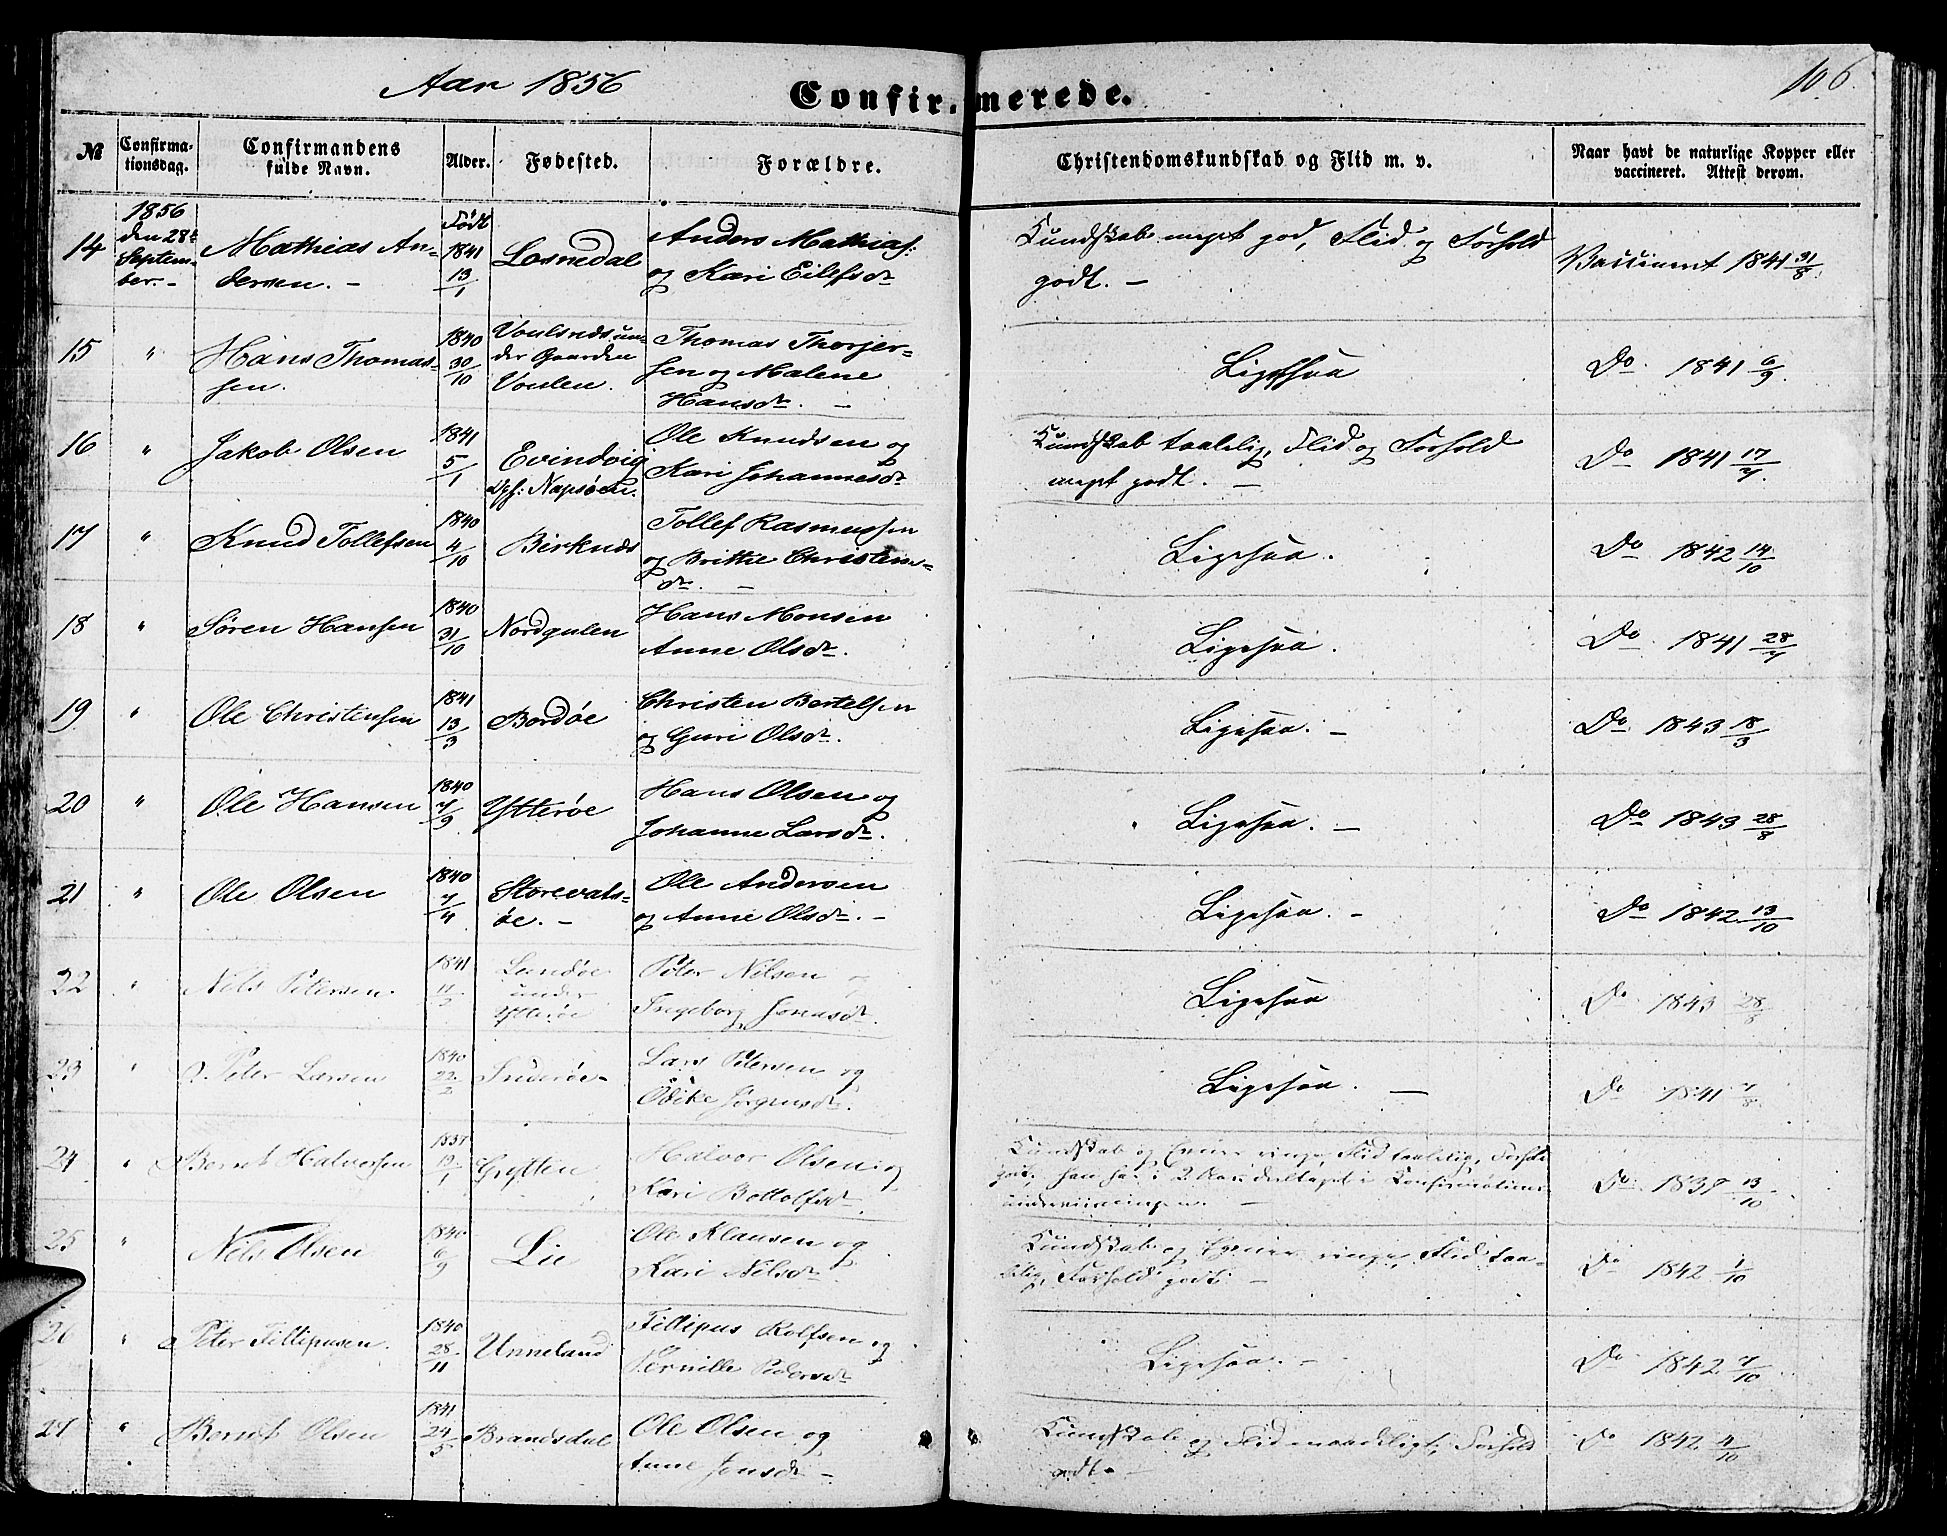 Aar 1856
Confirmerede.
106.
№
Confirma-
tionsdag.
Confirmandens
fulde Navn.
Alder.
Fødested.
Forældre.
Christendomskundskab og Flid m. v.
Naar havt de naturlige Kopper eller
vaccineret. Attest derom.
14
1856
den 28de
Septem-
ber. -
Mathias An-
dersen. -
Født
1841
13/1
Losnedal
Anders Mathias:
og Kari Eilifsdr
Kundskab meget god, Flid og Forhold
godt. -
Vaccineret 1841 31/8.
15
"
Hans Thomas-
sen.
1840
30/10
un-
der Gaarden
Thomas Thorjer-
sen og Malene
Hansdr. -
Ligesaa
Do. 1841 6/9.
16
"
Jakob Olsen
1841
5/1
Evindvig
Ole Knudsen og
Kari Johannesdr
Kundskab taalelig, Flid og Forhold
meget godt. -
Do 1841 17/7.
17
"
Knud Tollefsen
1840
4/10
Birknes
Tollef Rasmussen
og Brithe Christens-
dr. -
Ligesaa.
Do 1842 14/10
18
"
Søren Hansen
1840
31/10
Nordgulen
Hans Monsen
Anne Olsdr.
Ligesaa.
Do. 1841 28/7
19
"
Ole Christensen
1841
13/3
Bordøe
Christen Bertelsen
og Guri Olsdr.
Ligesaa. -
Do. 1843 18/3
20
"
Ole Hansen
1840
7/9
Ytterøe
Hans Olsen og
Johanne Larsdr.
Ligesaa. -
Do 1843 28/8
21
"
Ole Olsen
1840
7/4
øe. -
Ole Andersen
og Anne Olsdr. -
Ligesaa. -
Do 1842 13/10
22
"
Nels Petersen.
1841
under
Ytterøe
Peter Nilsen og
Ingeborg
Ligesaa
Do. 1843 28/8
23
"
Peter Larsen
1840
22/2
Inderøe
Lars Petersen og
Jørgensdr.
Ligesaa. -
Do 1841 7/8.
24
"
Bernt Halvorsen
1837
19/1
Halvor Olsen og
Kari Bottolfsdr.
Kundskab og Evner ringe, Flid taalelig, Forhold
godt, han har i 2 Aar deeltaget i Confirmations-
underviisningen. -
Do. 1839 13/10
25
"
Nels Olsen
1840
6/9
Lie
Ole Klausen og
Kari Nilsdr.
Kundskab og Evner ringe, Flid taa-
lelig, Forhold godt. -
Do 1842 1/10
26
"
Peter Fillipusen.
1840
28/11
Unneland
Fillipus Rolfsen og
Pernille Pedersdr
Ligesaa. -
Do 1842 7/10
27
"
Bernt Olsen
1841
24/5
Brandsdal
Ole Olsen og
Anne Jonsdr -
Kundskab og Flid maadeligt, Forhold
godt. -
Do 1842 4/10